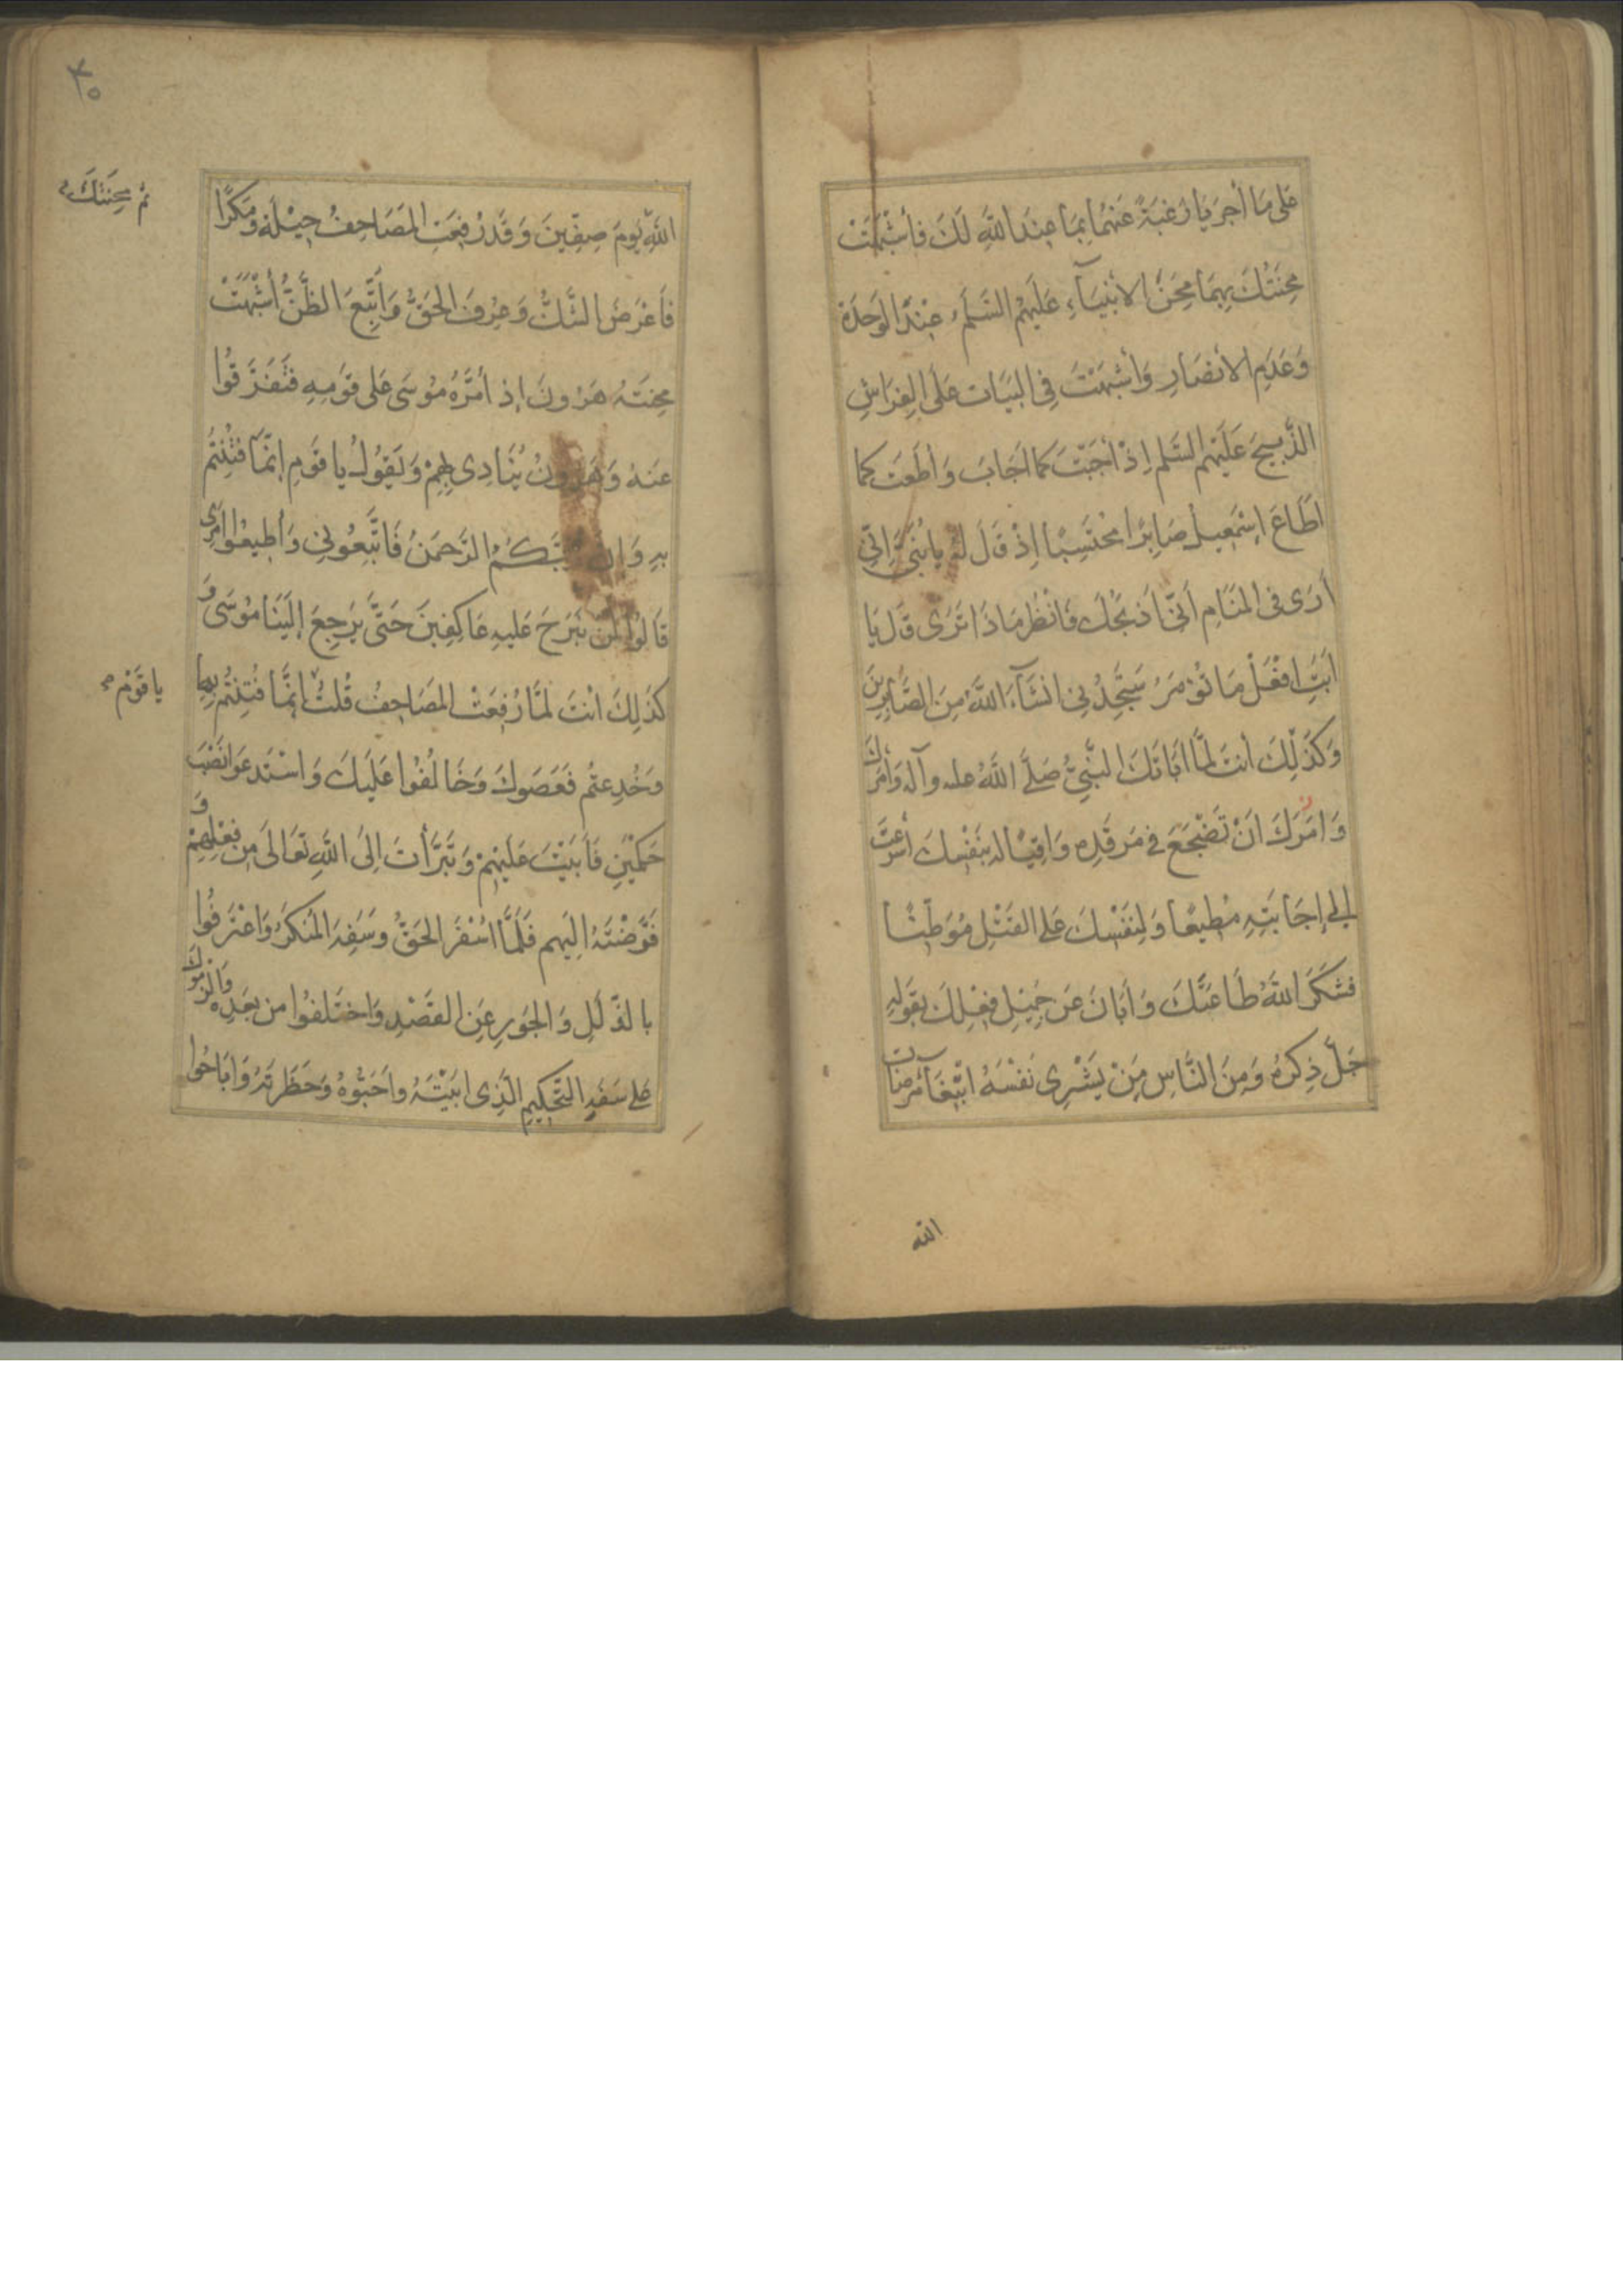 عَلى مَا أُجرِيَا رَغبَةً عَنهُمَا بِمَا عِندَ اللهِ لَكَ فَأَشْبَهَتْ
مِحنَتُكَ بِهِمَا مِحَنَ الأنبِيَآءِ عَلَيهِمُ السَّلَمُ عِنْدَ الوَحدَةِ
وَعَدَمِ الأنصَارِ وَأَشْبَهْتَ فِى البَيَاتِ عَلَى الفِرَاشِ
الذَّبيحَ عَلَيهِمُ السَّلم اِذْ أَجَبْتَ كَمَا اَجَابَ وَأَطَعتَ كمَا
اَطَاعَ اِسْمَعِيلُ صَابِرًا مُحْتَسِبًا اِذْ قَلَ لَهُ يا بُنَىَّ اِنِّي
أَرَى فِى المَنَامِ اَنّى اَذبَحُكَ فَانْظُر مَاذَا تَرَى قَلَ يَا
اَبَتِ افْعَلْ مَا تُؤمَرُ سَتَجِدُنِى انشَآءَ اللهُ مِنَ الصَّابِرِينَ
وَكَذَلِكَ أنتَ لَمَّا اَبَاتَكَ النَّبِىُّ صَلَّى اللهُ عليه وآله وَأَمَرَكَ
وَامَرَكَ اَنْ تَضْجَعَ فى مَرقَدِه وَاقِيًا له بِنَفْسِكَ أَسْرَعتَ
اِلى إِجَابَتِهِ مُطِيعًا وَلِنَفْسِكَ عَلى القَتْلِ مُوَطِّنًا
فشَكَرَ اللهُ طَاعَتَكَ وَأَبَانَ عَن جَمِيلِ فِعْلِكَ بِقَولِهِ
جَلّ ذِكرُه وَمِنَ النَّاسِ مَنْ يَشْرِى نَفْسَهُ ابْتِغَآءَ مَرضَاتِ
الله
٣٥
اللهِ يَومَ صِفِّينَ وَقَد رُفِعَتِ المَصَاحِفُ حِيْلَةً وَمَكرًا
ثم مِحنَتُكَ
فَاَعْرَضَ الشَّكُّ وَعُرِفَ الحَقُّ وَاتُّبِعَ الظَّنُّ أشْبَهَتْ
مِحنَتَهُ هَرُونَ اِذ أمَّرَهُ مُوسَى عَلى قَومِهِ فَتَفَرَّقُوا
عَنهُ وَهَرُونُ يُنَادِى بِهِمْ وَيَقُولُ يا قَومِ اِنَّمَا فُتِنْتُم
بِهِ وَاِنَّ رَبَّكُمُ الرَّحمَنُ فَاتَّبِعُونِى وَأَطِيعُوا اَمْرِى
قَالُوا لَن نَبرَحَ عَلَيهِ عَاكِفِينَ حَتَّى يَرجِعَ إلَيْنَا مُوسَى وَ
كَذَلِكَ اَنتَ لَمَّا رُفِعَتْ المَصَاحِفُ قُلْتَ إنَّمَا فُتِنْتُم بِهَا
يا قَوْمِ
وَخُدِعتُم فَعَصَوكَ وَخَالَفُوا عَلَيكَ وَاسْتَدعَوا نَصْبَ
حَكَمَيْنِ فَاَبَيْتَ عَلَيْهِمْ وَتَبَرَّأتَ اِلَى اللهِ تَعَالَى مِن فِعْلِهِمْ وَ
فَوَّضْتَهُ اِلَيهِم فَلَمَّا اسْفَرَ الحَقُّ وَسَفِهَ المُنكَرُ وَاعْتَرَفُوا
بالذَّلَلِ وَالجَورِ عَنِ القَصْدِ وَاختَلَفُوا من بَعدِه وَالزَمُوكَ
عَلى سَفَهٍ التَّحكِيمَ الَّذِى ابَيْتَهُ واَحَبُّوهُ وَحَظَرتَهُ وَابَاحُوا